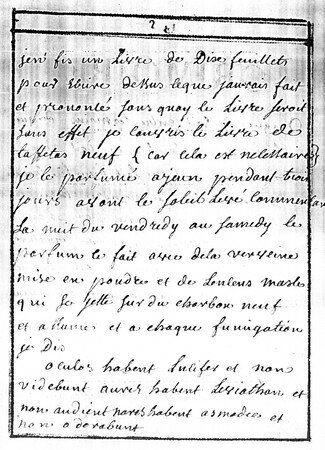 jen fis un Livre de Dix feuillets
pour Ecrire dessus ceque jaurais fait
et prononcé sans quoy le Livre seroit
sans effet je couvris le Livre de
taffetas neuf (car cela est necessaire)
je le parfumé a jeun pendant trois
jours avant le soleil Levé
La nuit du vendredy au samedy le
parfum se fait avec dela verveine
mise en poudre et de Lencens masle
qui se jette sur du charbon neuf
et allumé et a chaque fumigation
je Dis
oculos habent Lucifer et non
videbunt aures habent Leviathan et
non audient nares habent asmodée et
non oderabunt